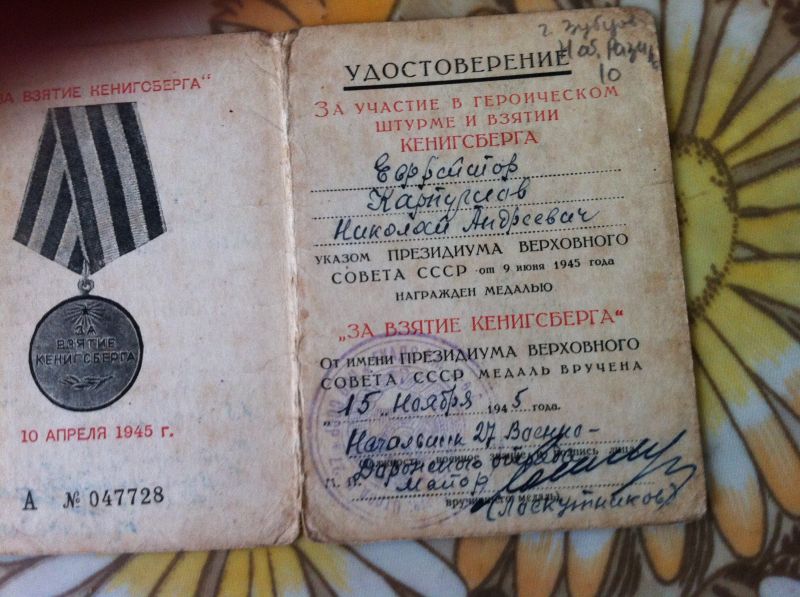 ЗА ВЗЯТИЕ КЕНИГСБЕРГА"
ЗА
ВЗЯТИЕ
КЕНИГСБЕРГА
10 АПРЕЛЯ 1945 г.
А № 047728
г. Зубцов
Наб.
10
УДОСТОВЕРЕНИЕ
ЗА УЧАСТИЕ В ГЕРОИЧЕСКОМ
ШТУРМЕ И ВЗЯТИИ
КЕНИГСБЕРГА
Ефрейтор
Николай Андреевич
УКАЗОМ ПРЕЗИДИУМА ВЕРХОВНОГО
СОВЕТА СССР от 9 июня 1945 года
НАГРАЖДЕН МЕДАЛЬЮ
„ЗА ВЗЯТИЕ КЕНИГСБЕРГА"
От имени ПРЕЗИДИУМА ВЕРХОВНОГО
СОВЕТА СССР МЕДАЛЬ ВРУЧЕНА
"15" Ноября 1945 года.
Начальник 27 Военно-
Майор
(Лоскутников)